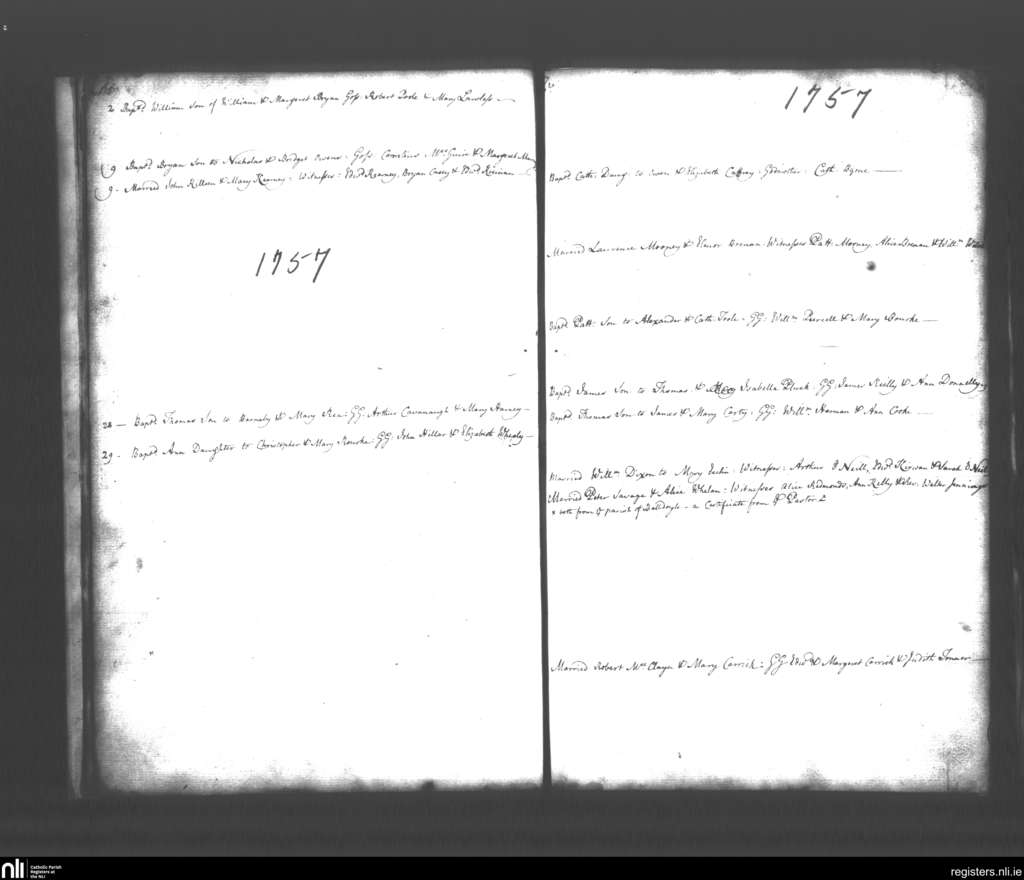 2 Bapt.d William Son of William & Margaret Bryan Goss. Robert Poole & Mary Lawless
9 Bapt.d Bryan Son to Nicholas & Bridget Owens. Goss. Cornelius & Margaret
9. Married John & Mary Kearney. Witnesses: Edw.d Kearney, Bryan Casey & Edw.d
1757
28 Bapt.d Thomas Son to Barnaby & Mary GG. Arthur Cavanaugh & Mary Harvey
29. Bapt.d Ann Daughter to Christopher & Mary Rourke. GG. John Hillar & Elizabeth Whealy
1757
Bapt.d Cath. Daug.r to Owen & Elizabeth Caffray. Godmother. Cath. Byrne
Married Laurence Mooney & Elenor Brenan. Witnesses Patt. Mooney, Alice Brenan & Will.m
Bapt.d Patt. Son to Alexander & Cath. Toole. GG: Will.m Purcell & Mary Bourke
Bapt.d James Son to Thomas & Isabella Pluck. GG. James Reilly & Ann Donnelly
Bapt.d Thomas Son to James & Mary Corty. GG: Will.m Homan & Ann Cooke
Married Will.m Dixon to Mary. Witnesses: Arthur O Neill, Edw.d Kirwan & Sarah O Neil
Married Peter Savage & Alice Whelan: Witnesses Alice Redmonds, Ann Kelly Walter Jennings
& both from ye parish of Balldoyle - a Certificate from ye Pastor
Married Robert & Mary Carrick: GG & Margaret Carrick & Judith
nli
Catholic Parish
Registers at
the NLI
registers.nli.ie